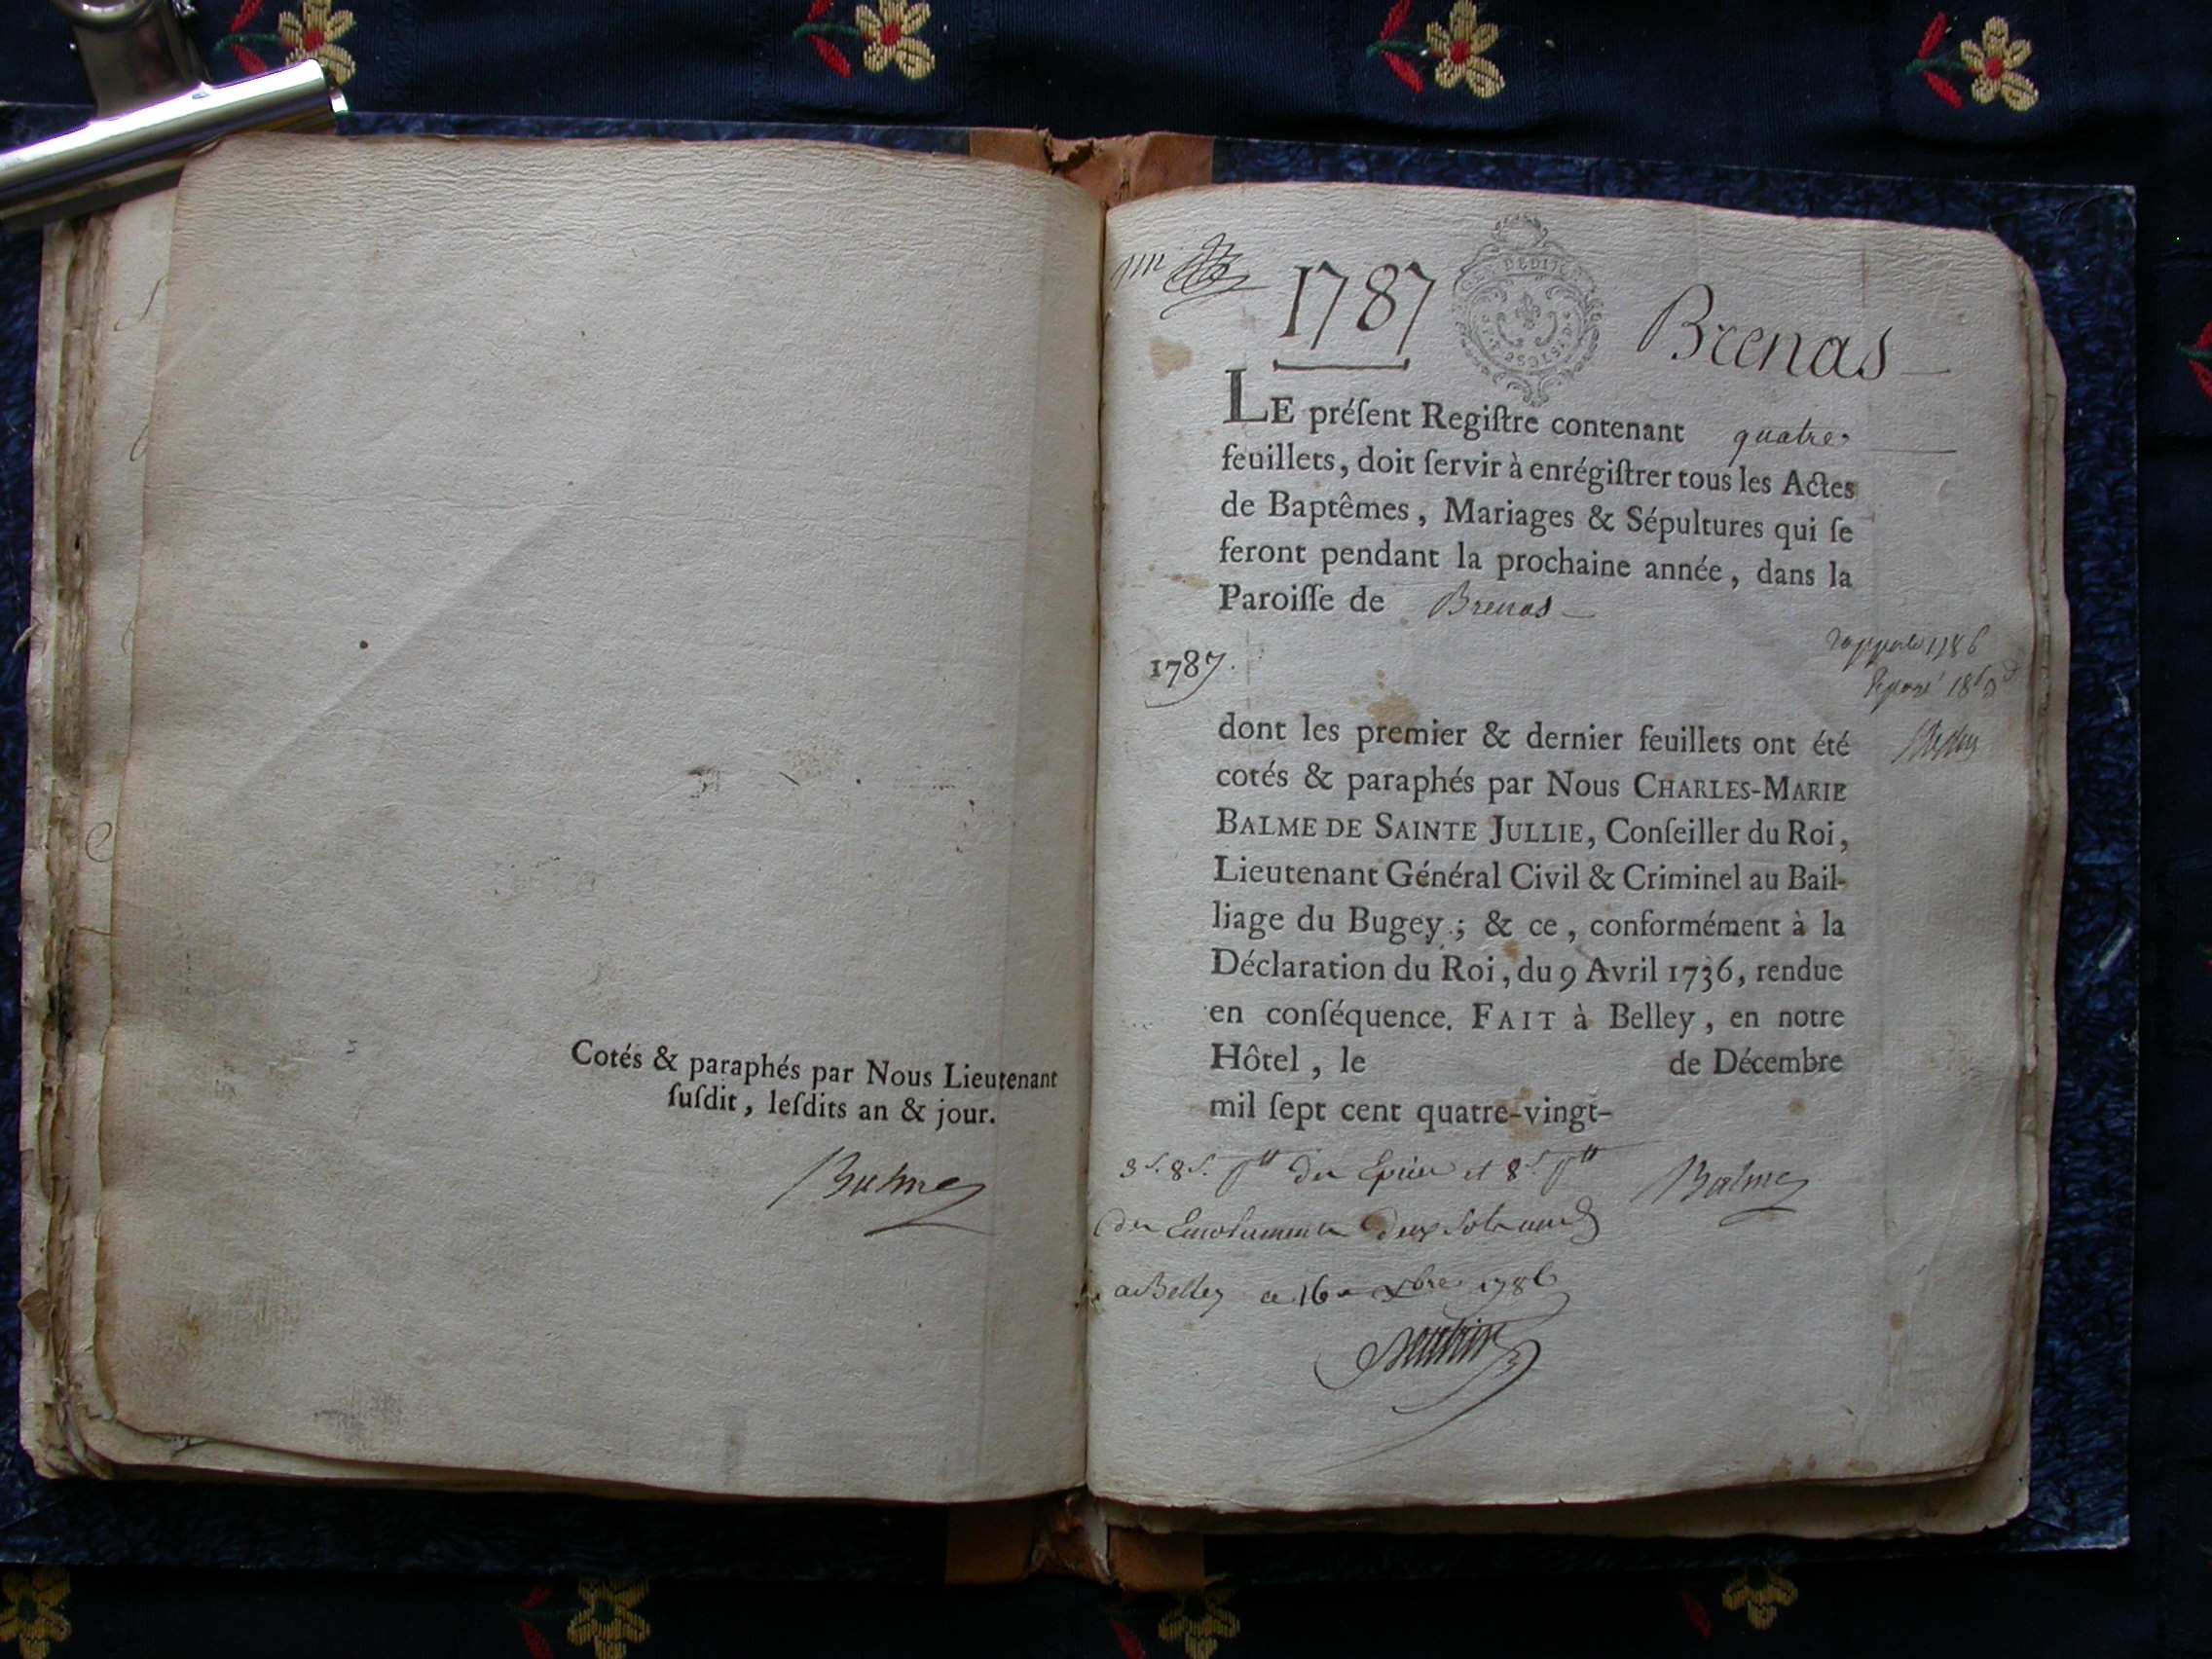 Cotés & paraphés par Nous Lieutenant
ſuſdit, leſdits an & jour.
Balme
1787
Brenas
LE préſent Regiſtre contenant quatre
feuillets, doit ſervir à enrégiſtrer tous les Actes
de Baptêmes, Mariages & Sépultures qui ſe
feront pendant la prochaine année, dans la
Paroiſſe de Brenas
1787.
1786
dont les premier & dernier feuillets ont été
cotés & paraphés par Nous CHARLES-MARIE
BALME DE SAINTE JULLIE, Conſeiller du Roi,
Lieutenant Général Civil & Criminel au Bail-
liage du Bugey; & ce, conformément à la
Déclaration du Roi, du 9 Avril 1736, rendue
en conſéquence. FAIT à Belley, en notre
Hôtel, le de Décembre
mil ſept cent quatre-vingt-
Balme
a Belley ce 16 xbre 1786